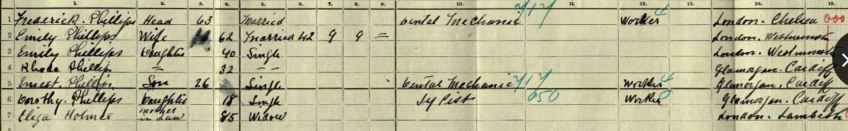 1 Frederick Phillips Head 63 Married Dental Mechanic 717 Worker 4 London - Chelsea 000
2 Emily Phillips Wife 62 Married 42 9 9 - London. Westminster
3 Emily Phillips Daughter 40 Single London. Westminster
4 Rhoda Phillips 32 Glamorgan. Cardiff
5 Ernest. Phillips Son 26 Single Dental Mechanic 717 Worker 4 Glamorgan. Cardiff
6 Dorothy. Phillips Daughter 18 Single Typist 050 Worker Glamorgan. Cardiff
7 Eliza Holmes mother in Law 85 Widow London. Lambeth